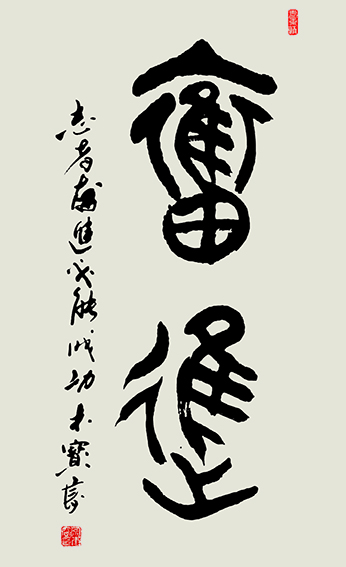 奮進
志者奮進必能成功木寶